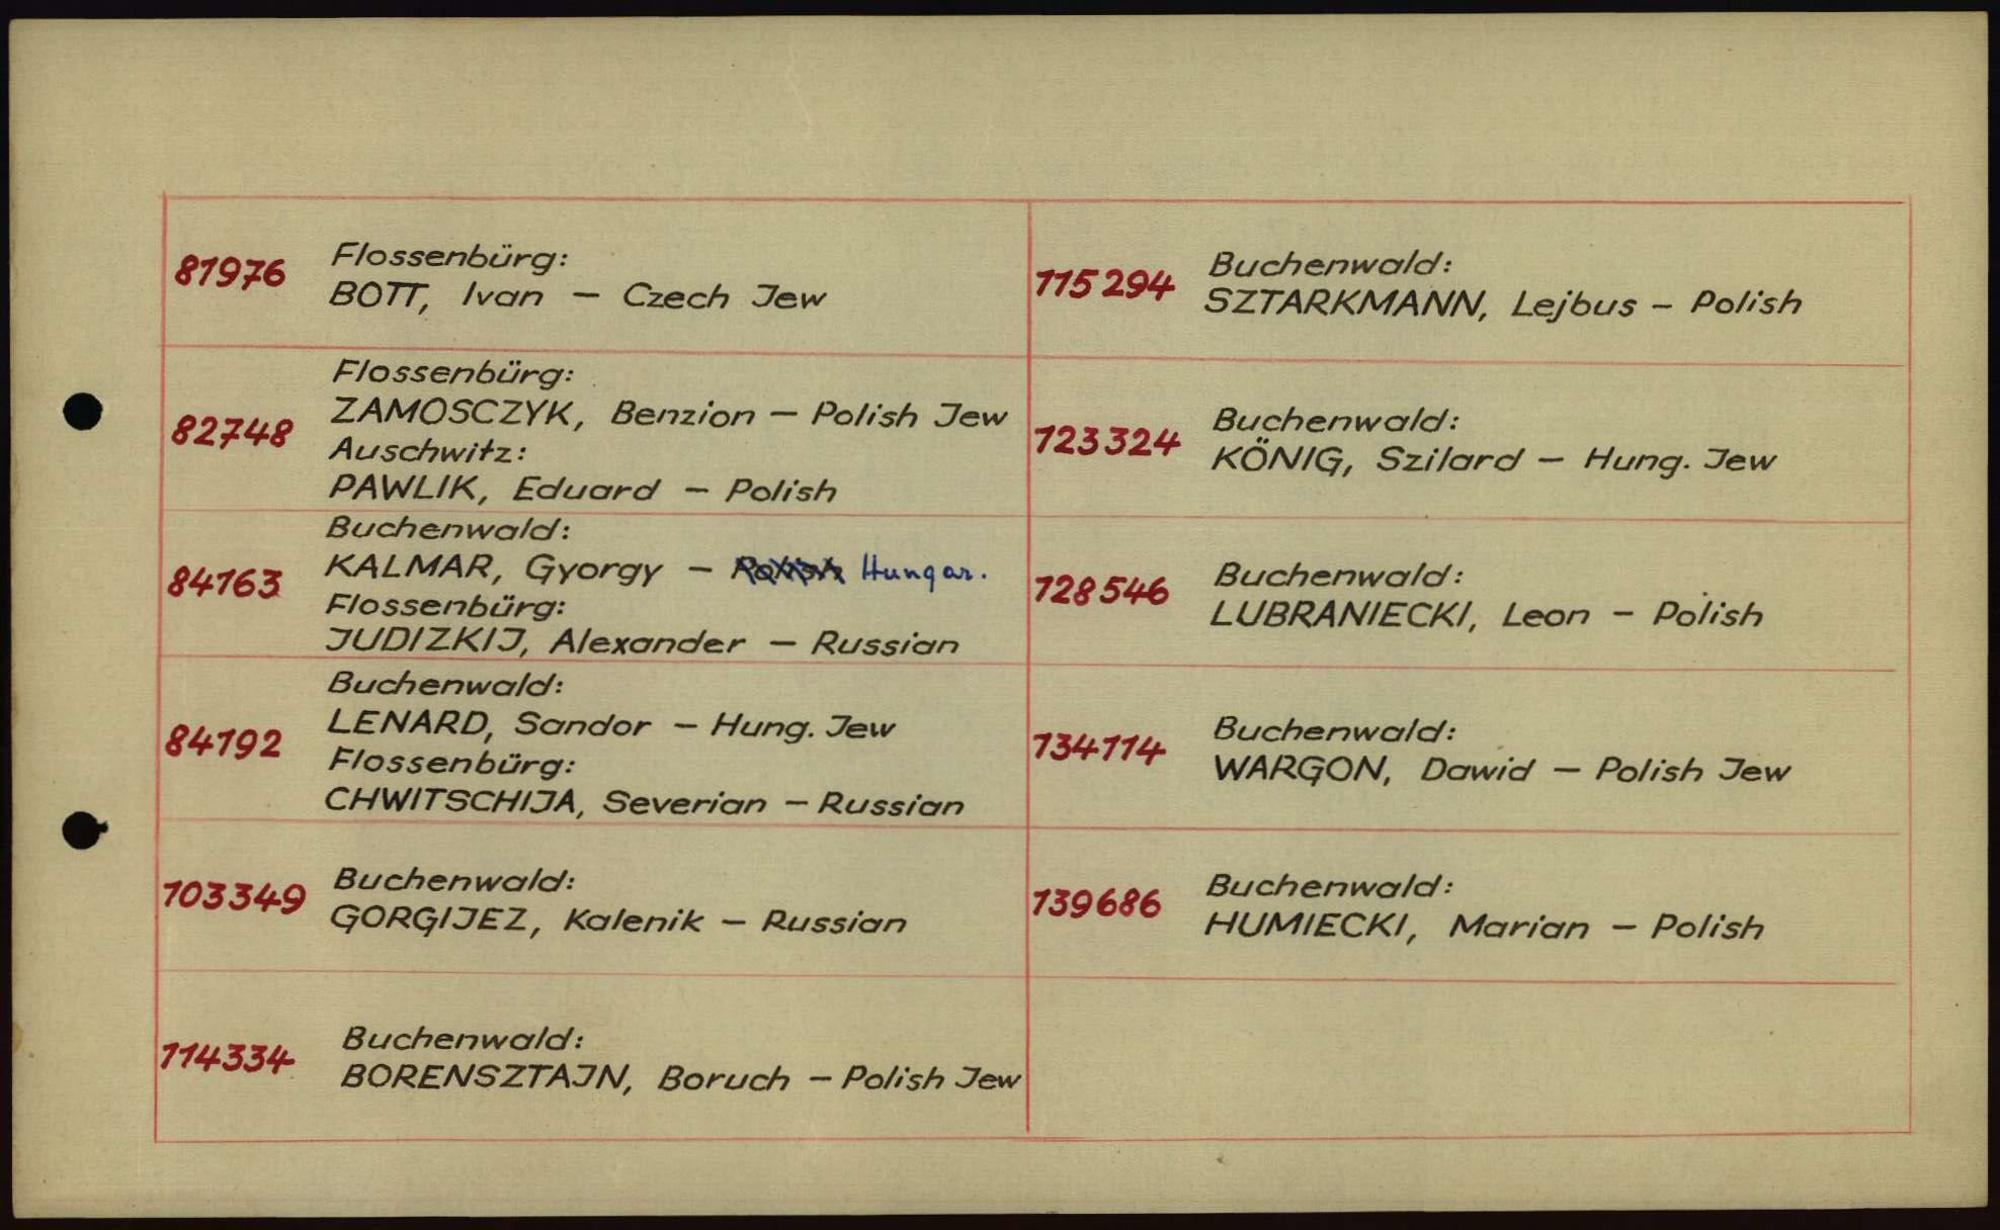 81976
Flossenbürg:
BOTT, Ivan – Czech Jew
82748
Flossenbürg:
ZAMOSCZYK, Benzion – Polish Jew
Auschwitz:
PAWLIK, Eduard – Polish
84163
Buchenwald:
KALMAR, Gyorgy – Polish Hungar.
Flossenbürg:
JUDIZKIJ, Alexander – Russian
84192
Buchenwald:
LENARD, Sandor – Hung. Jew
Flossenbürg:
CHWITSCHIJA, Severian – Russian
103349
Buchenwald:
GORGIJEZ, Kalenik – Russian
114334
Buchenwald:
BORENSZTAJN, Boruch – Polish Jew
115294
Buchenwald:
SZTARKMANN, Lejbus – Polish
123324
Buchenwald:
KÖNIG, Szilard – Hung. Jew
128546
Buchenwald:
LUBRANIECKI, Leon – Polish
134114
Buchenwald:
WARGON, Dawid – Polish Jew
139686
Buchenwald:
HUMIECKI, Marian – Polish